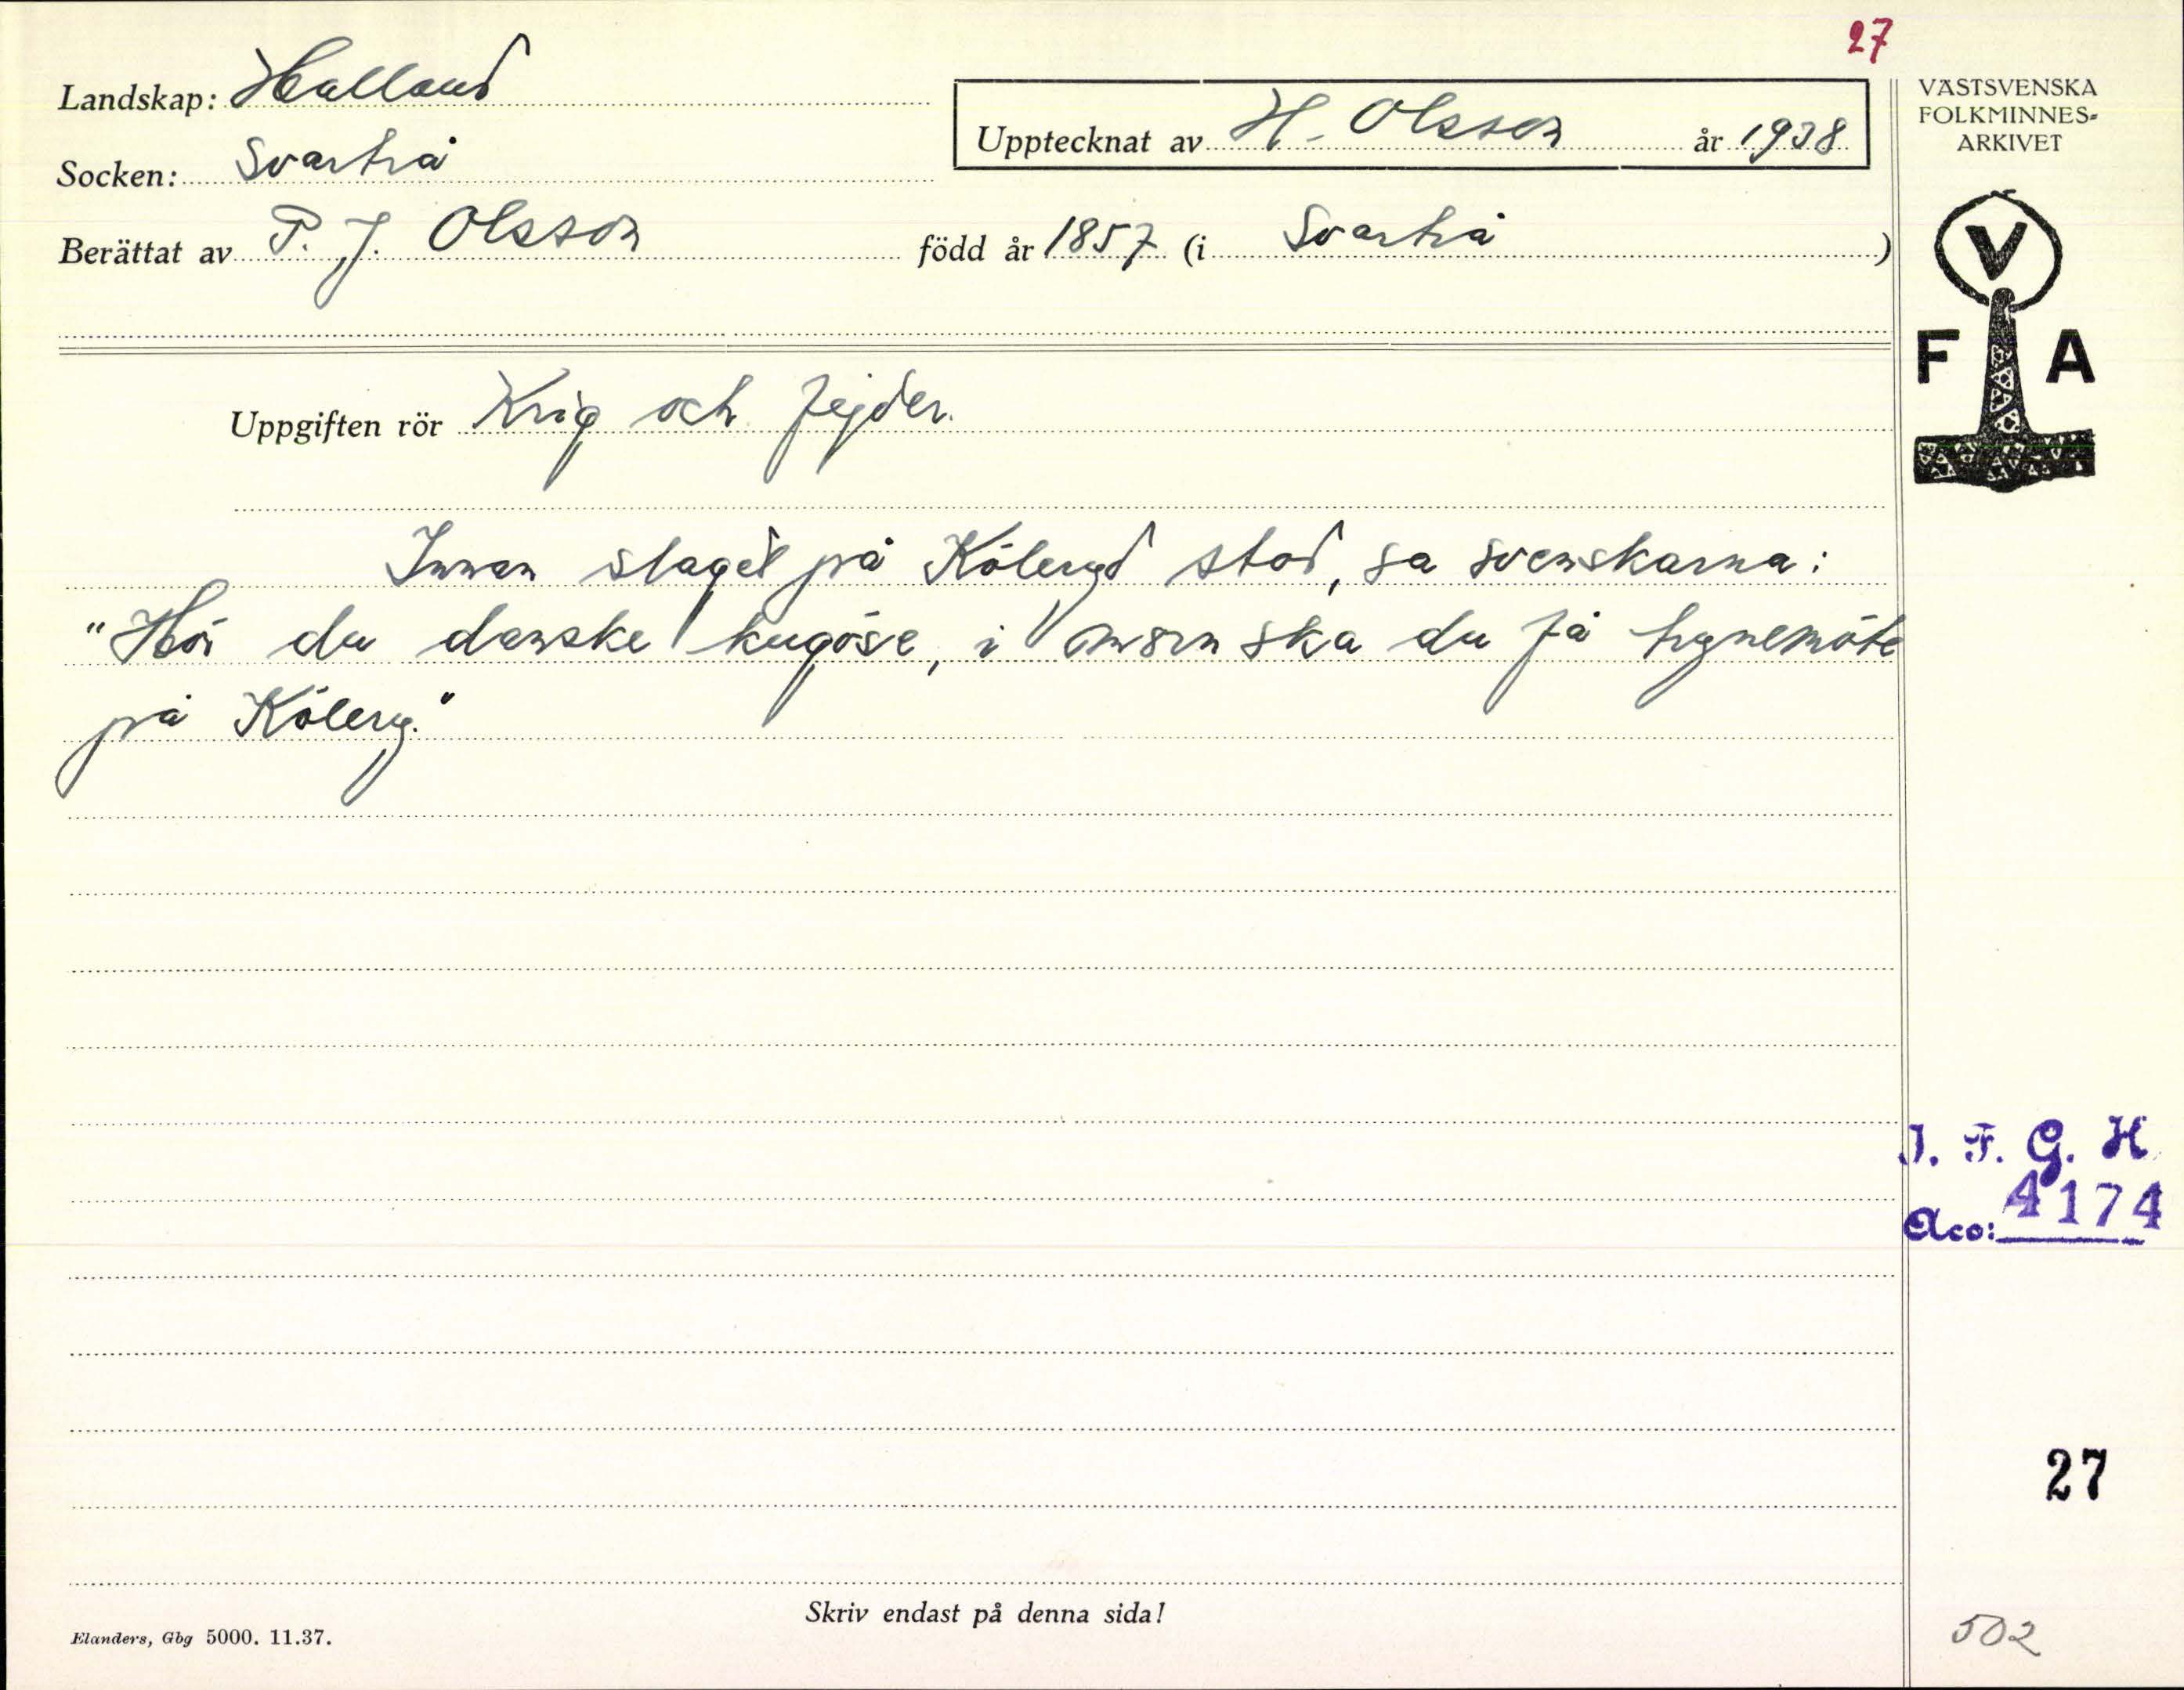 27
Landskap: Halland
Upptecknat av H. Olsson år 1938
VÄSTSVENSKA
FOLKMINNES-
ARKIVET
Socken: Svartrå
Berättat av P. J. Olsson född år 1857 (i Svartrå)
V
F A
Uppgiften rör Krig och fejder.
Innan slaget på Kåleryd stod, sa svenskarna:
"Hör du danske kugöse, i morn ska du få trynemöte
på Kålery."
I. F. G. H.
Acc: 4174
27
Skriv endast på denna sida!
Elanders, Gbg 5000. 11.37.
502